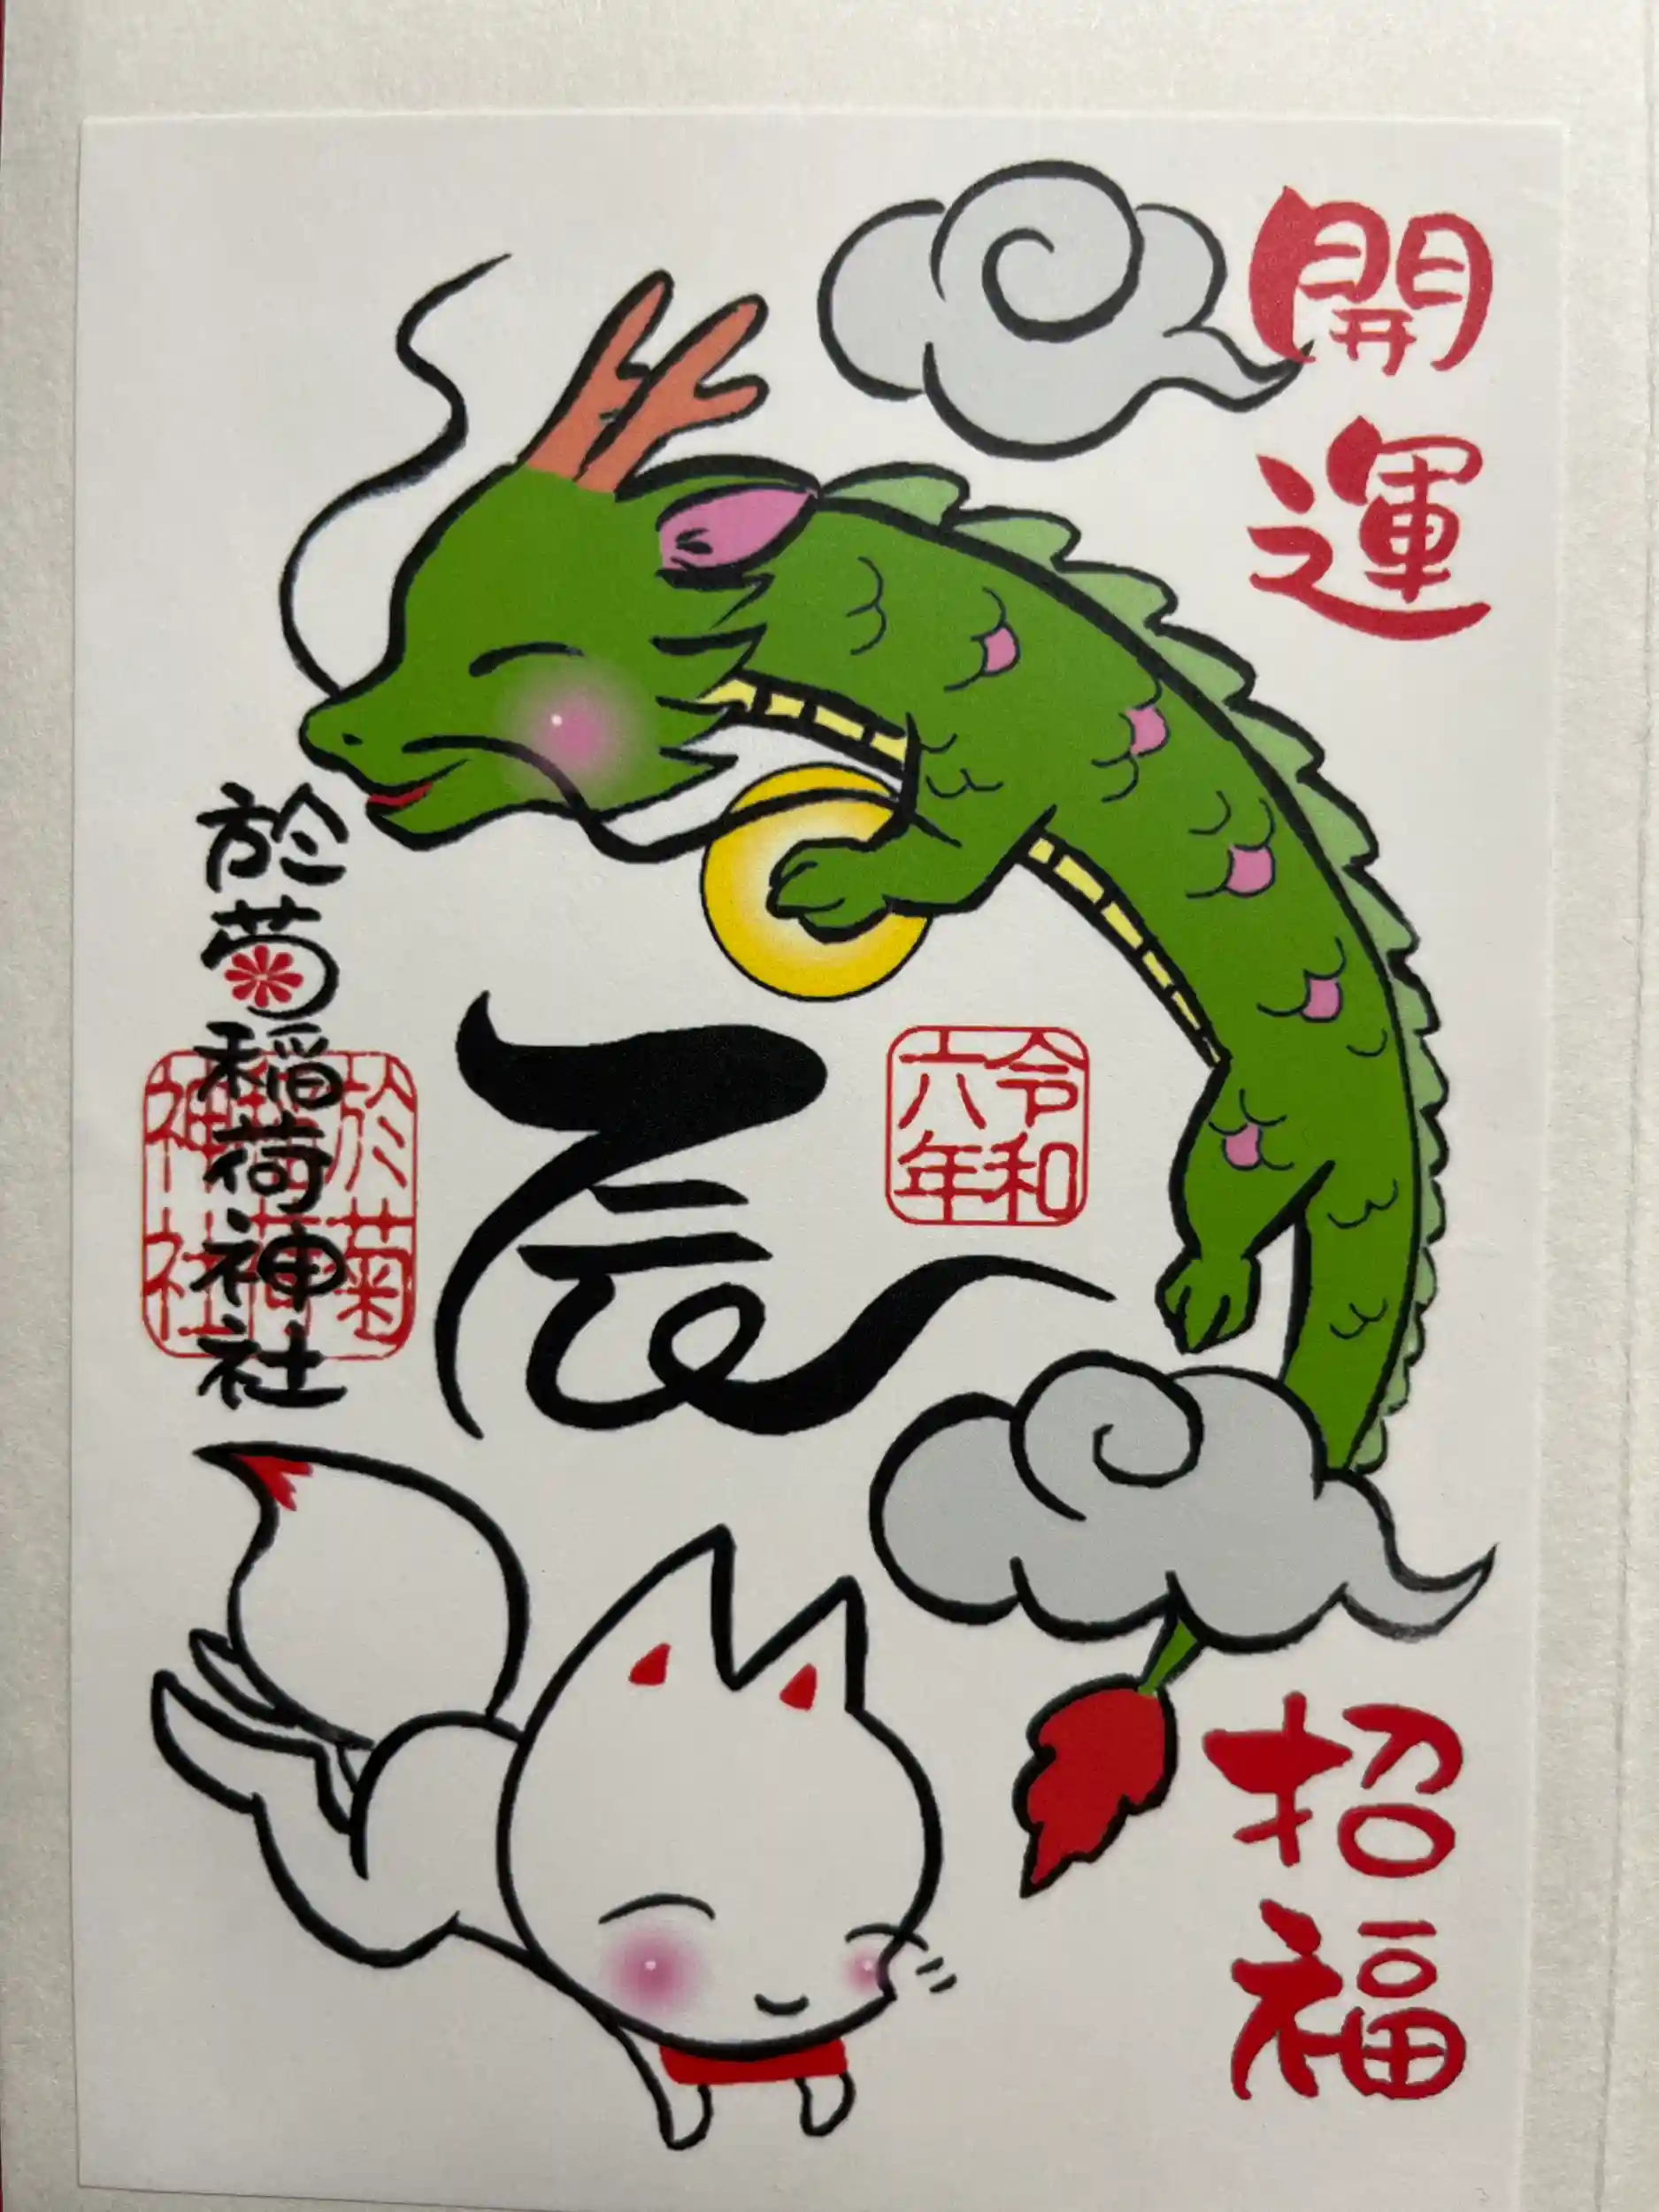 開運
招福
令和
六年
辰
於菊稲荷神社
於菊
稲荷
神社